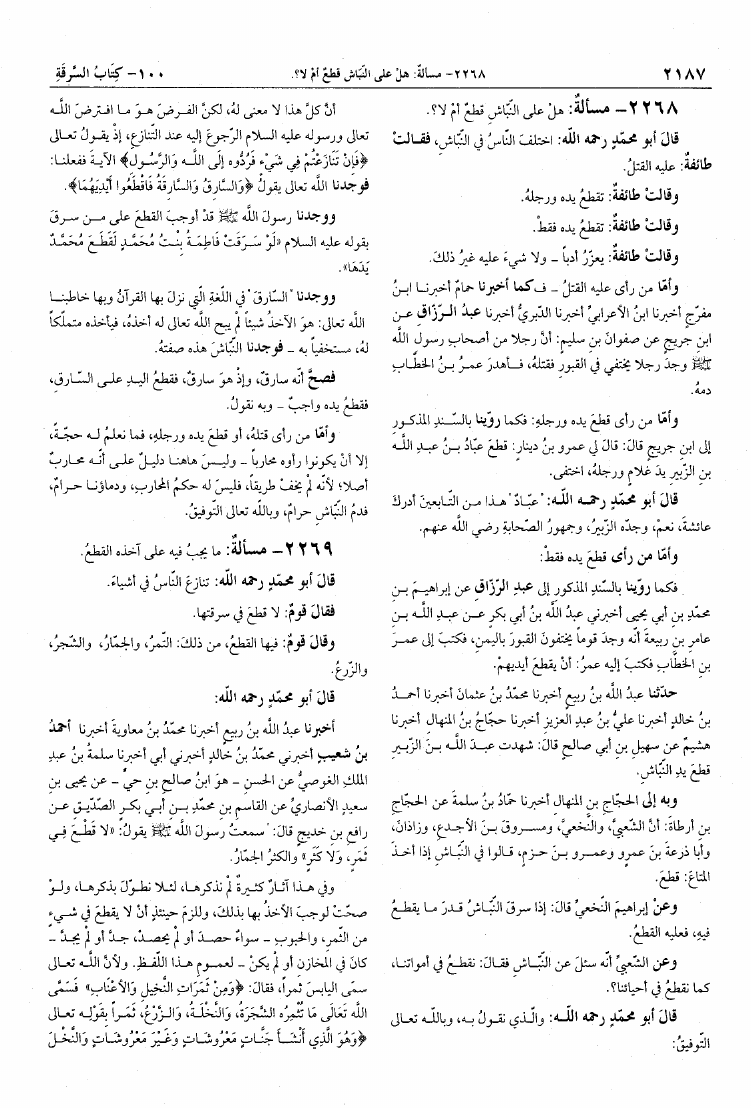 ٢١٨٧
٢٢٦٨- مسألة: هل على النّباش قطعٌ أمْ لا؟.
١٠٠- كِتَابُ السَّرِقَةِ
٢٢٦٨- مسألةٌ: هلْ على النَّباشِ قطعٌ أمْ لا؟.
قالَ أبو محمَّدٍ رحمه الله: اختلفَ النّاسُ في النّباشِ، فقـالتْ
طائفةٌ: عليه القتلُ.
وقالتْ طائفةٌ: تقطعُ يده ورجلهُ.
وقالتْ طائفةٌ: تقطعُ يده فقطْ.
وقالتْ طائفةٌ: يعزّرُ أدباً - ولا شيءَ عليه غيرُ ذلكَ.
وأمّا من رأى عليه القتلُ - فـكما أخبرنا حمامٌ أخبرنـا ابـنُ
مفرّجٍ أخبرنا ابنُ الأعرابيِّ أخبرنا الدّبريُّ أخبرنا عبدُ الـرّزّاقِ عـن
ابن جريجٍ عن صفوانَ بنِ سليمٍ: أنَّ رجلا من أصحابِ رسولِ اللّه
ﷺ وجدَ رجلا يختفي في القبورِ فقتلهُ، فـأهدرَ عمـرُ بـنُ الخطّـابِ
دمهُ.
وأمّا من رأى قطعَ يده ورجلهِ: فكما روّينا بالسّـندِ المذكـورِ
إلى ابنِ جريجٍ قالَ: قالَ لي عمرو بنُ دينارٍ: قطعَ عبّادُ بـنُ عبـدِ اللّـه
بنِ الزّبيرِ يدَ غلامٍ ورجلهُ، اختفى.
قالَ أبو محمَّدٍ رحمـه اللّـه: "عبّـادٌ" هـذا مـن التّـابعينَ أدركَ
عائشةَ، نعمْ، وجدّه الزّبيرَ، وجمهورَ الصّحابةِ رضي اللّه عنهم.
وأمّا من رأى قطعَ يده فقطْ:
فكما روّينا بالسّندِ المذكورِ إلى عبدِ الرّزّاقِ عن إبراهيـمَ بـنِ
محمّدِ بنِ أبي يحيى أخبرني عبدُ اللّه بنُ أبي بكرٍ عـن عبـدِ اللّـه بـنِ
عامرِ بنِ ربيعةَ أنّه وجدَ قوماً يختفونَ القبورَ باليمنِ، فكتبَ إلى عمـرَ
بنِ الخطّابِ فكتبَ إليه عمرُ: أنْ يقطعَ أيديهمْ.
حدّثنا عبدُ اللّه بنُ ربيعٍ أخبرنا محمّدُ بنُ عثمانَ أخبرنا أحمـدُ
بنُ خالدٍ أخبرنا عليُّ بنُ عبدِ العزيزِ أخبرنا حجّاجُ بنُ المنهالِ أخبرنا
هشيمٌ عن سهيلِ بنِ أبي صالحٍ قالَ: شهدت عبـدَ اللّـه بـنَ الزّبـيرِ
قطعَ يدِ النّبّاشِ.
وبه إلى الحجّاجِ بنِ المنهالِ أخبرنا حمّادُ بنُ سلمةَ عن الحجّاجِ
بنِ أرطاةَ: أنَّ الشّعبيَّ، والنّخعيَّ، ومسـروقَ بـنَ الأجـدعِ، وزاذانَ،
وأبا ذرعةَ بنَ عمرٍو وعمـرو بـنَ حـزمٍ، قـالوا في النّبـاشِ إذا أخـذَ
المتاعَ: قطعَ.
وعنْ إبراهيمَ النّخعيِّ قالَ: إذا سرقَ النّبّاشُ قـدرَ مـا يقطـعُ
فيهِ، فعليه القطعُ.
وعن الشّعبيِّ أنّه سئلَ عن النّباشِ فقـالَ: نقطـعُ في أمواتنـا،
كما نقطعُ في أحيائنا؟.
قالَ أبو محمّدٍ رحمـه اللـه: والّـذي نقـولُ بـه، وباللّـه تعـالى
التّوفيقُ:
أنَّ كلَّ هذا لا معنى لهُ، لكنّ الفـرضَ هـوَ مـا افـترضَ اللّـه
تعالى ورسوله عليه السلام الرّجوعَ إليه عند التّنازعِ، إذْ يقـولُ تعـالى
﴿فَإِنْ تَنَازَعْتُمْ فِي شَيْءٍ فَرُدُّوه إلَى اللَّـه وَالرَّسُـولِ﴾ الآيـةَ ففعلنـا:
فوجدنا اللّه تعالى يقولُ ﴿وَالسَّارِقُ وَالسَّارِقَةُ فَاقْطَعُوا أَيْدِيَهُمَا﴾.
ووجدنا رسولَ اللّه ﷺ قدْ أوجبَ القطعَ على مـن سـرقَ
بقوله عليه السلام «لَوْ سَرَقَتْ فَاطِمَةُ بِنْتُ مُحَمَّدٍ لَقَطَـعَ مُحَمَّـدٌ
يَدَهَا».
ووجدنا "السّارقَ" في اللّغةِ الّتي نزلَ بها القرآنُ وبها خاطبنـا
اللّه تعالى: هوَ الآخذُ شيئاً لمْ يبح اللّه تعالى له أخذهُ، فيأخذه متملّكاً
لهُ، مستخفياً به - فوجدنا النّبّاشَ هذه صفتهُ.
فصحَّ أنّه سارقٌ، وإذْ هوَ سارقٌ، فقطعُ اليـدِ علـى السّـارقِ،
فقطعُ يده واجبٌ - وبه نقولُ.
وأمّا من رأى قتلهُ، أو قطعَ يده ورجلهِ، فما نعلمُ لـه حجّـةً،
إلا أنْ يكونوا رأوه محارباً - وليـسَ هاهنـا دليلٌ علـى أنّـه محـاربٌ
أصلا؛ لأنّه لمْ يخفْ طريقاً، فليسَ له حكمُ المحاربِ، ودماؤنـا حـرامٌ،
فدمُ النّبّاشِ حرامٌ، وباللّه تعالى التّوفيقُ.
٢٢٦٩- مسألةٌ: ما يجبُ فيه على آخذه القطعُ.
قالَ أبو محمّدٍ رحمه اللّه: تنازعَ النّاسُ في أشياءَ.
فقالَ قومٌ: لا قطعَ في سرقتها.
وقالَ قومٌ: فيها القطعُ، من ذلكَ: الثّمرُ، والجمّارُ، والشّجرُ،
والزّرعُ.
قالَ أبو محمّدٍ رحمه اللّه:
أخبرنا عبدُ اللّه بنُ ربيعٍ أخبرنا محمّدُ بنُ معاويةَ أخبرنا أحمدُ
بنُ شعيبٍ أخبرني محمّدُ بنُ خالدٍ أخبرني أبي أخبرنا سلمةُ بنُ عبدِ
الملكِ الغوصيُّ عن الحسنِ - هوَ ابنُ صالحِ بنِ حيٍّ - عن يحيى بنِ
سعيدٍ الأنصاريِّ عن القاسمِ بنِ محمّدِ بـنِ أبـي بكـرٍ الصّدّيـقِ عـن
رافعِ بنِ خديجٍ قالَ: "سمعتُ رسولَ اللّه ﷺ يقولُ: «لا قَطْـعَ فِـي
ثَمَرٍ، وَلا كَثَرٍ» والكثرُ الجمّارُ.
وفي هـذا آثـارٌ كثيرةٌ لمْ نذكرهـا، لئـلا نطـوّلَ بذكرهـا، ولـوْ
صحّتْ لوجبَ الأخذُ بها بذلكَ، وللزمَ حينئذٍ أنْ لا يقطعَ في شـيءٍ
من الثّمرِ، والحبوبِ - سواءٌ حصدَ أو لمْ يحصدْ، جـدَّ أو لمْ يجـدَّ -
كانَ في المخازنِ أو لمْ يكنْ - لعمـومِ هـذا اللّفـظِ. ولأنَّ اللّـه تعـالى
سمّى اليابسَ ثمراً، فقالَ: ﴿وَمِنْ ثَمَرَاتِ النَّخِيلِ وَالأَعْنَابِ﴾ فَسَمَّى
اللَّه تَعَالَى مَا تُثْمِرُه الشَّجَرَةُ، وَالنَّخْلَةُ، وَالزَّرْعُ، ثَمَـراً بِقَوْلِـه تعـالى
﴿وَهُوَ الَّذِي أَنْشَـأَ جَنَّاتٍ مَعْرُوشَـاتٍ وَغَيْرَ مَعْرُوشَاتٍ وَالنَّخْـلَ